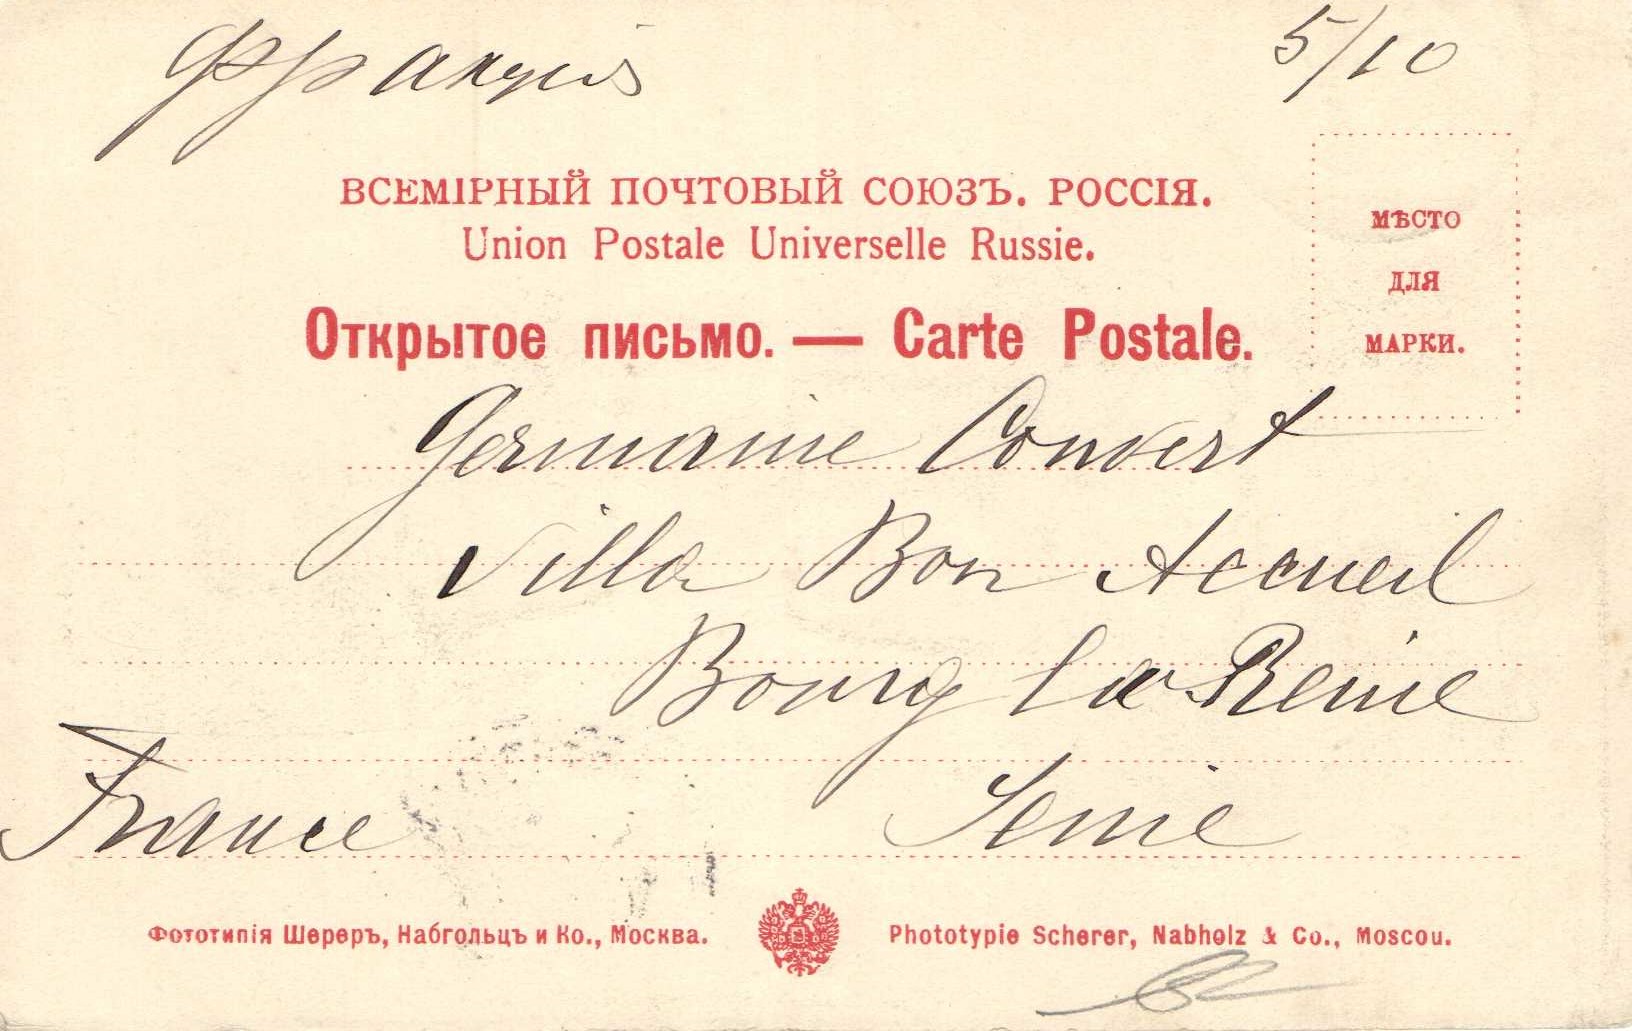 Франція
5/10
ВСЕМІРНЫЙ ПОЧТОВЫЙ СОЮЗЪ. РОССІЯ.
Union Postale Universelle Russie.
Открытое письмо. — Carte Postale.
МѢСТО
ДЛЯ
МАРКИ.
Germaine Convert
Villa Bon Accueil
Bourg la Reine
France Seine
Фототипія Шереръ, Набгольцъ и Ко., Москва.
Phototypie Scherer, Nabholz & Co., Moscou.